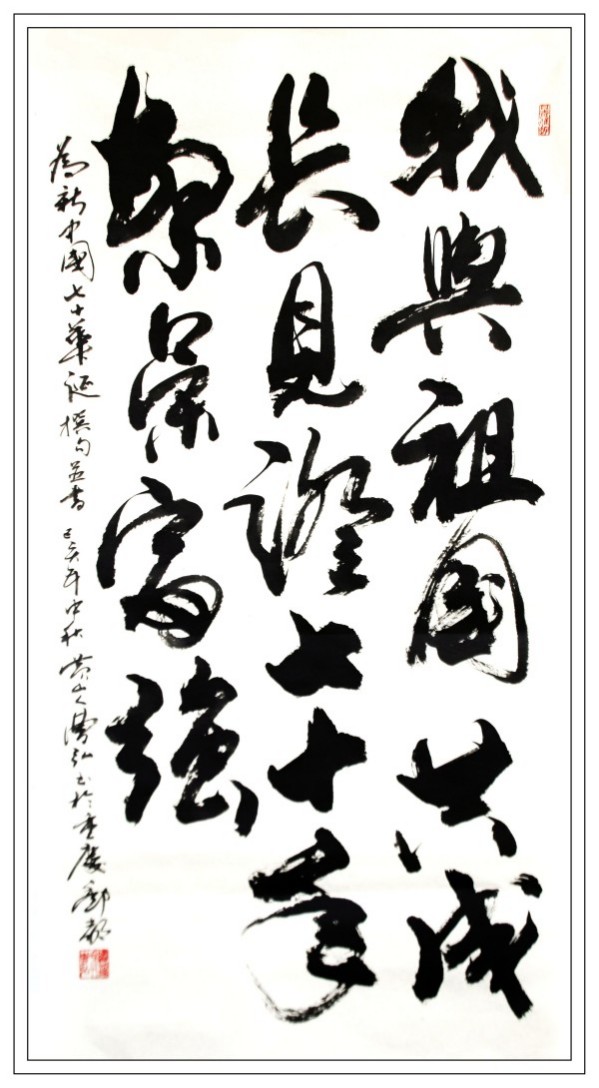 我與祖國共成
長見證七十年
繁榮富強
為新中國七十華誕撰句並書 己亥年中秋 於重慶